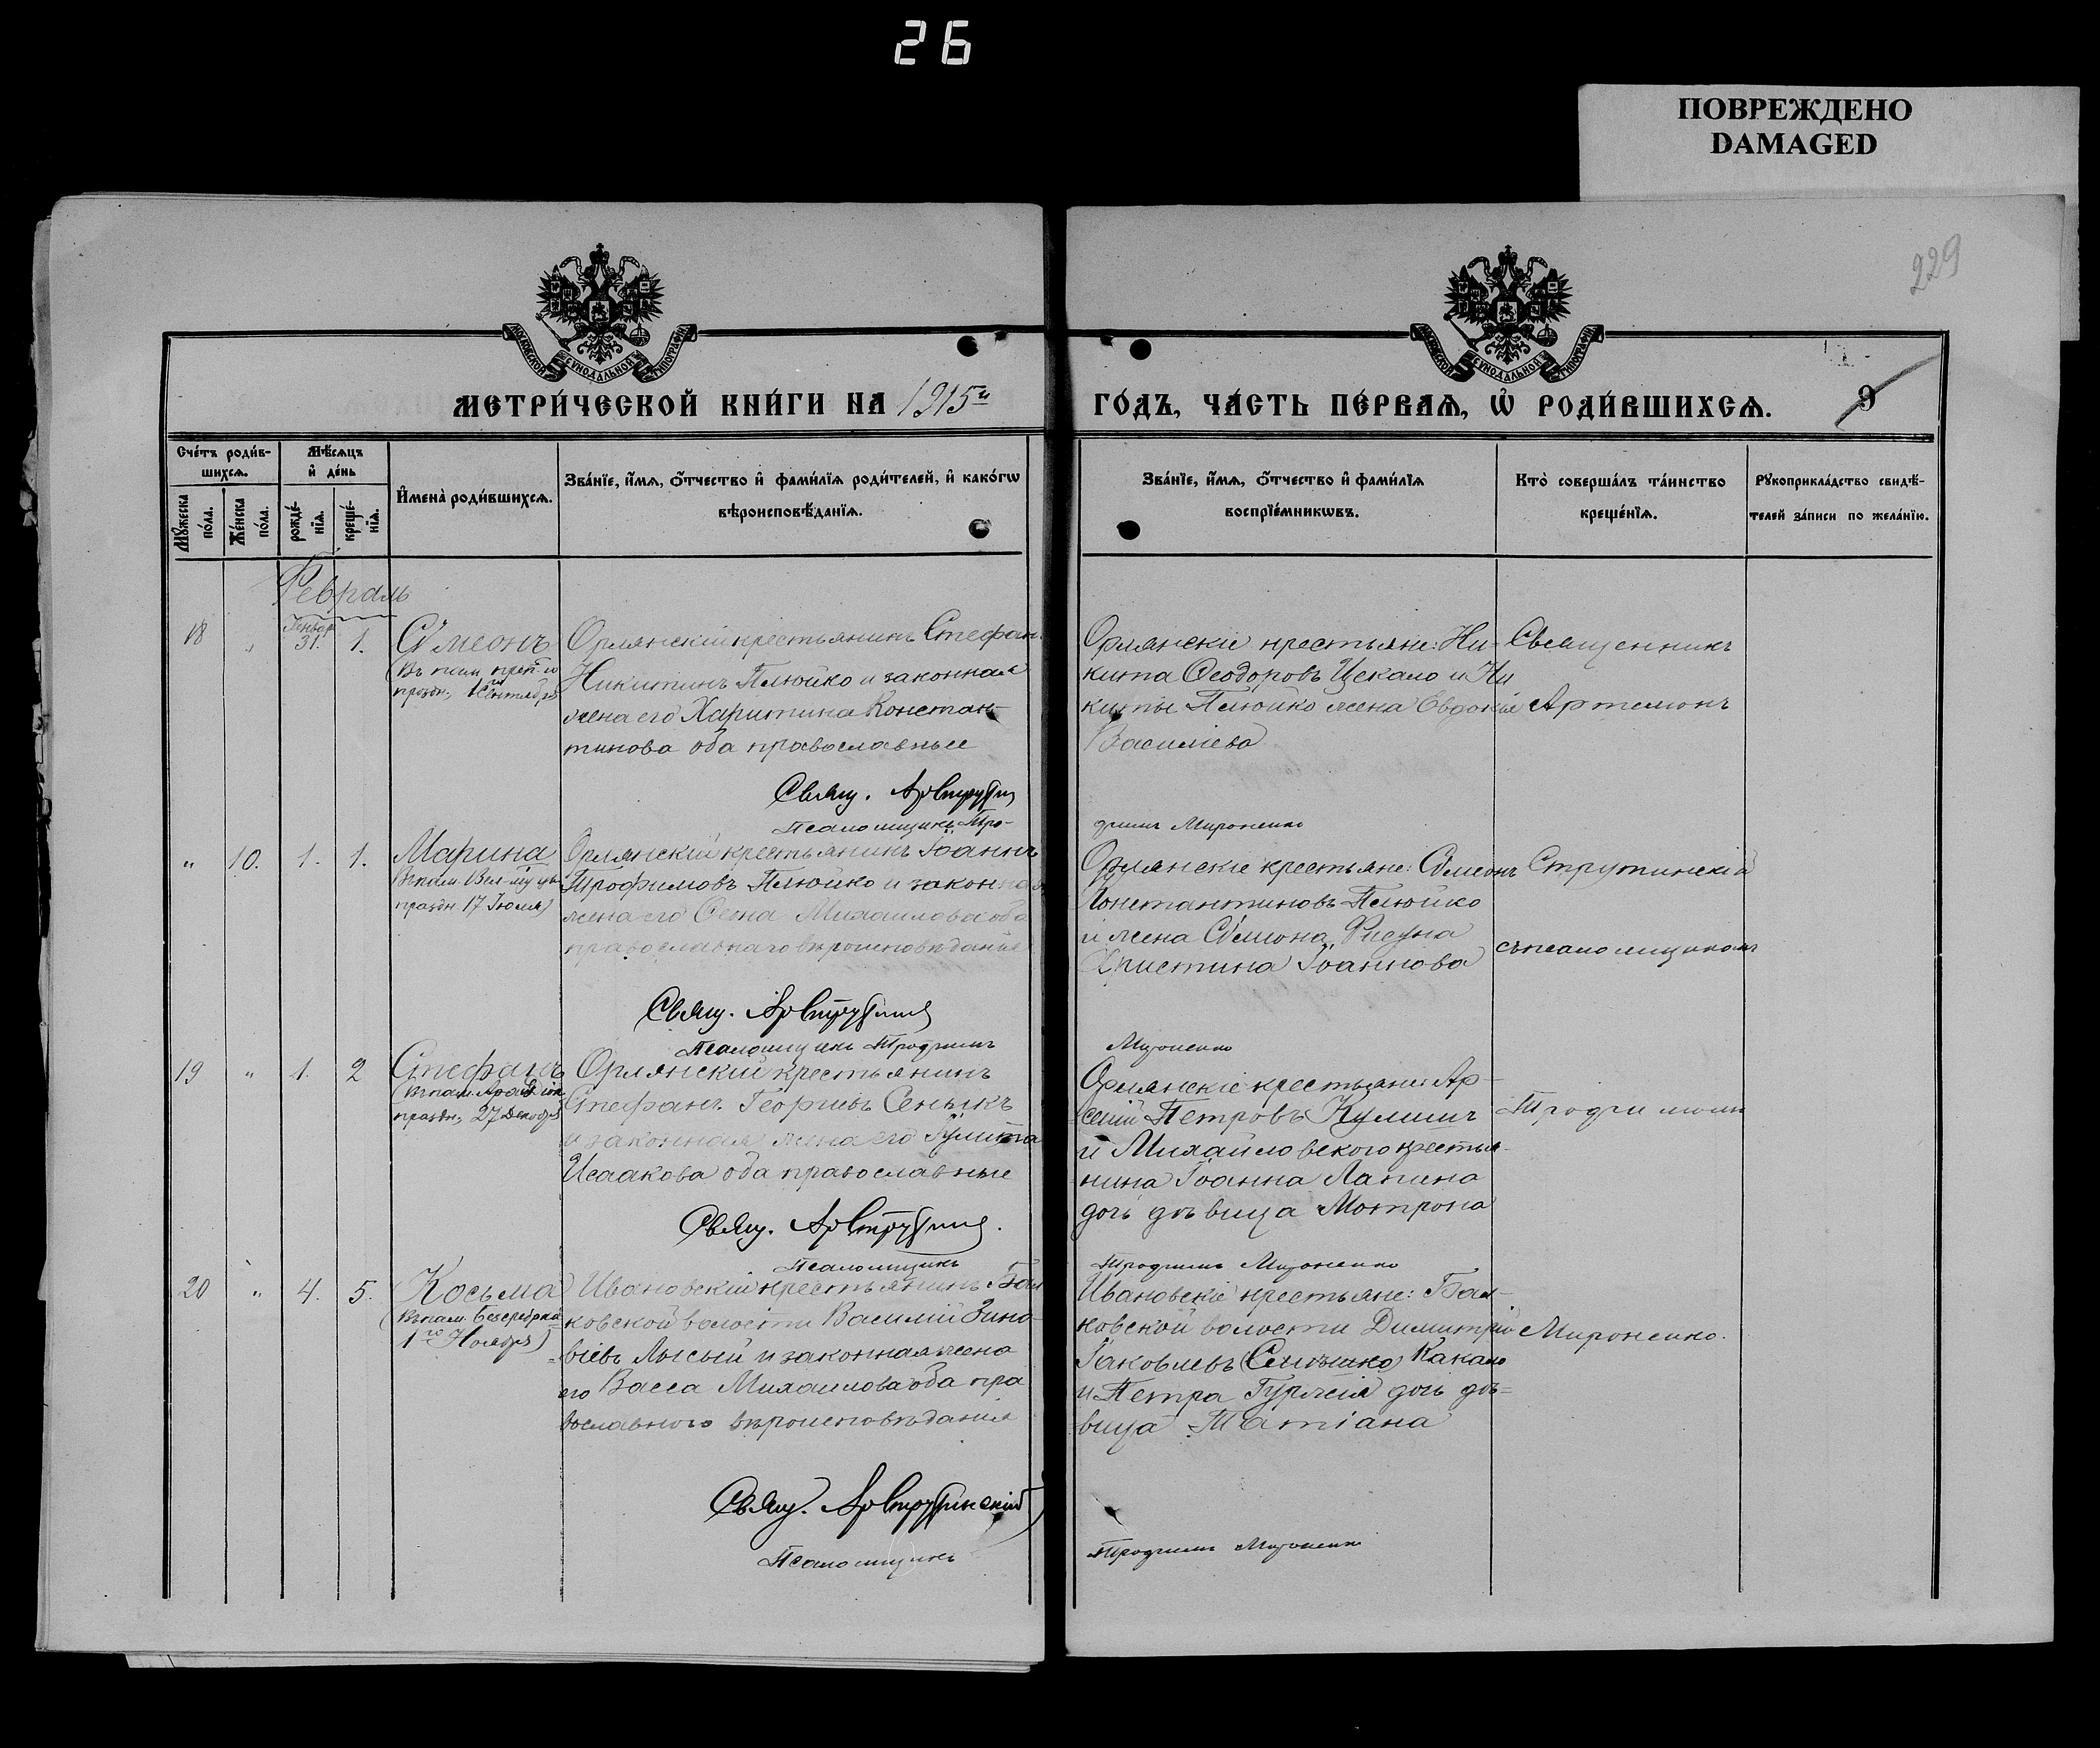 26
ПОВРЕЖДЕНО
DAMAGED
229
МЕТРИ́ЧЕСКОЙ КНИ́ГИ НА 1915й
ГО́ДЪ, ЧА́СТЬ ПЕ́РВАѦ, Ѡ҆ РОДИ́ВШИХСѦ.
9
Сче́тъ роди́в-
шихсѧ.
Мѣ́сѧцъ
и҆ де́нь
Мꙋ́жеска по́ла.
Же́нска по́ла.
рожде́-
нїѧ.
креще́-
нїѧ.
И҆мена̀ роди́вшихсѧ.
Зва́нїе, и҆́мѧ, ѻ҆́тчество и҆ фами́лїѧ роди́телей, и҆ како́гѡ
вѣроисповѣ́данїѧ.
Зва́нїе, и҆́мѧ, ѻ҆́тчество и҆ фами́лїѧ
воспрїе́мникѡвъ.
Кто̀ соверша́лъ та́инство
креще́нїѧ.
Рꙋкоприкла́дство свидѣ́-
телей за́писи по жела́нїю.
Февраль
18 " Генвар 31. 1. Сѵмеонъ
(Въ пам. преп-го
праздн. 1го Сентября)
Орлянскій крестьянинъ Стефан
Никитинъ Плюйко и законная
жена его Харитина Констан-
тинова оба православные
Свящ. Ар Струтин
Псаломщикъ Тро-
Орлянскіе крестьяне: Ни-
кита Ѳеодоровъ Цекало и Ни
киты Плюйко жена Евдокія
Василіева
фимъ Мироненко
Священникъ
Артемонъ
" 10. 1. 1. Марина
(Въ пам. Вел-мц
праздн. 17 Іюля)
Орлянскій крестьянинъ Іоаннъ
Трофимовъ Плюйко и законная
жена его Михаилова оба
православнаго вѣроисповѣданія
Свящ. Ар Струтинс
Псаломщикъ Трофимъ
Орлянскіе крестьяне: Сѵмеонъ
Константиновъ Плюйко
и жена Сѵмеона Рисуна
Христина Іоаннова
Мироненко
Струтинскій
съ псаломщикомъ
19 " 1. 2 Стефанъ
праздн. 27 Декабря)
Орлянскій крестьянинъ
Стефанъ Георгіевъ Сенькъ
и законная жена его Іулитта
Исаакова оба православные
Свящ. Ар Струтинс.
Псаломщикъ
Орлянскіе крестьяне: Ар-
сеній Петровъ Кулишъ
и Михайловского крестья-
нина Іоанна Лапина
дочь дѣвица Мотрона
Трофимъ Мироненко
Трофимомъ
20 " 4. 5. Косьма
(Въ пам. Безсребрен.
1го Ноября)
Ивановскій крестьянинъ Бал
ковской волости Василій Зино-
віевъ Лысый и законная жена
его Васса Михаилова оба пра
вославного вѣроисповѣданія
Свящ. Ар Струтинскій
Псаломщикъ
Ивановскіе крестьяне: Бал-
ковской волости Димитрій
Іаковлевъ
и Петра Гуржія дочь дѣ-
вица Татіана
Трофимъ Мироненко
Мироненко.